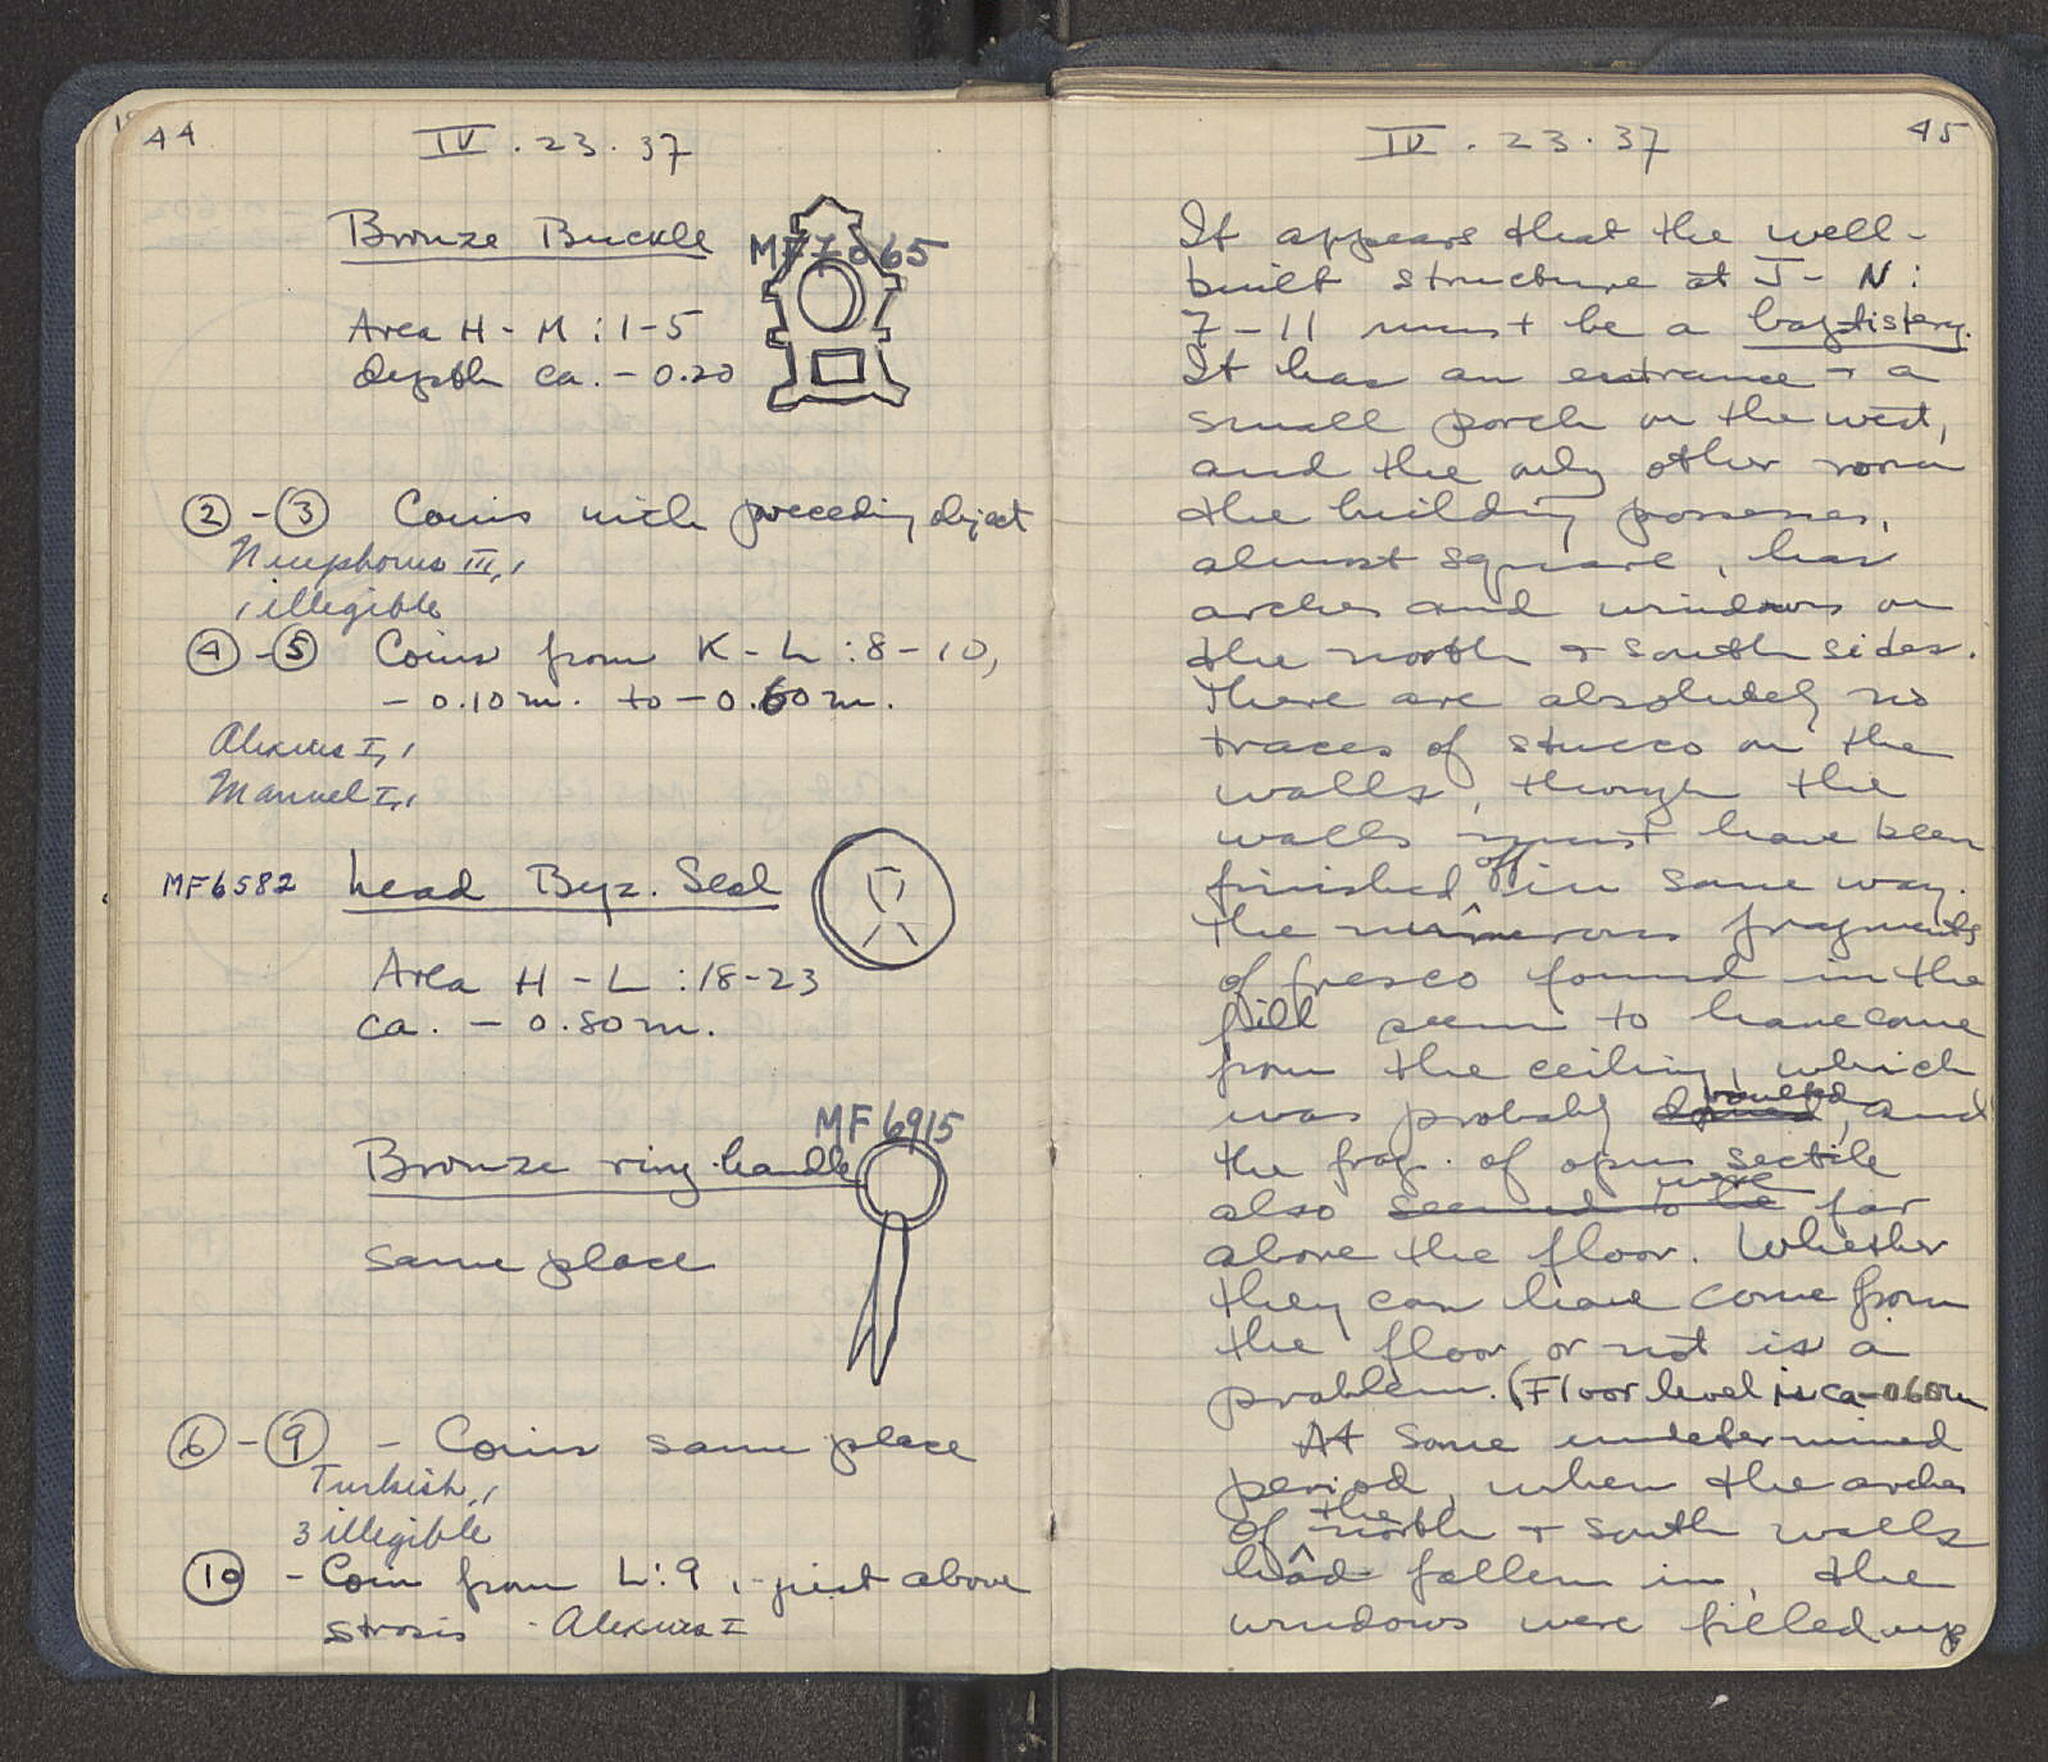 44
IV . 23 . 37
Bronze Buckle MF7865
Area H - M : 1-5
depth ca. - 0.20
② - ③ Coins with preceding object
Nicephorus III, 1
1 illegible
④ - ⑤ Coins from K - L : 8 - 10,
- 0.10 m. to - 0.60 m.
Alexius I, 1
Manuel I, 1
MF6582 Lead Byz. Seal
Area H - L : 18-23
ca. - 0.80 m.
MF 6915
Bronze ring handle
same place
⑥ - ⑨ - Coins same place
Turkish, 1
3 illegible
⑩ - Coin from L : 9, just above
strosis - Alexius I
45
IV . 23 . 37
It appears that the well-
built structure at J - N :
7 - 11 must be a baptistery.
It has an entrance + a
small porch on the west,
and the only other room
the building possesses,
almost square, has
arches and windows on
the north + south sides.
There are absolutely no
traces of stucco on the
walls, though the
walls must have been
finished off in some way.
The numerous fragments
of fresco found in the
fill seem to have come
from the ceiling, which
was probably domed vaulted, and
the frag. of opus sectile
also seemed to be were far
above the floor. Whether
they can have come from
the floor or not is a
problem. (Floor level is ca - 0.60m
At some undetermined
period, when the arches
of the north + south walls
had fallen in, the
windows were filled up